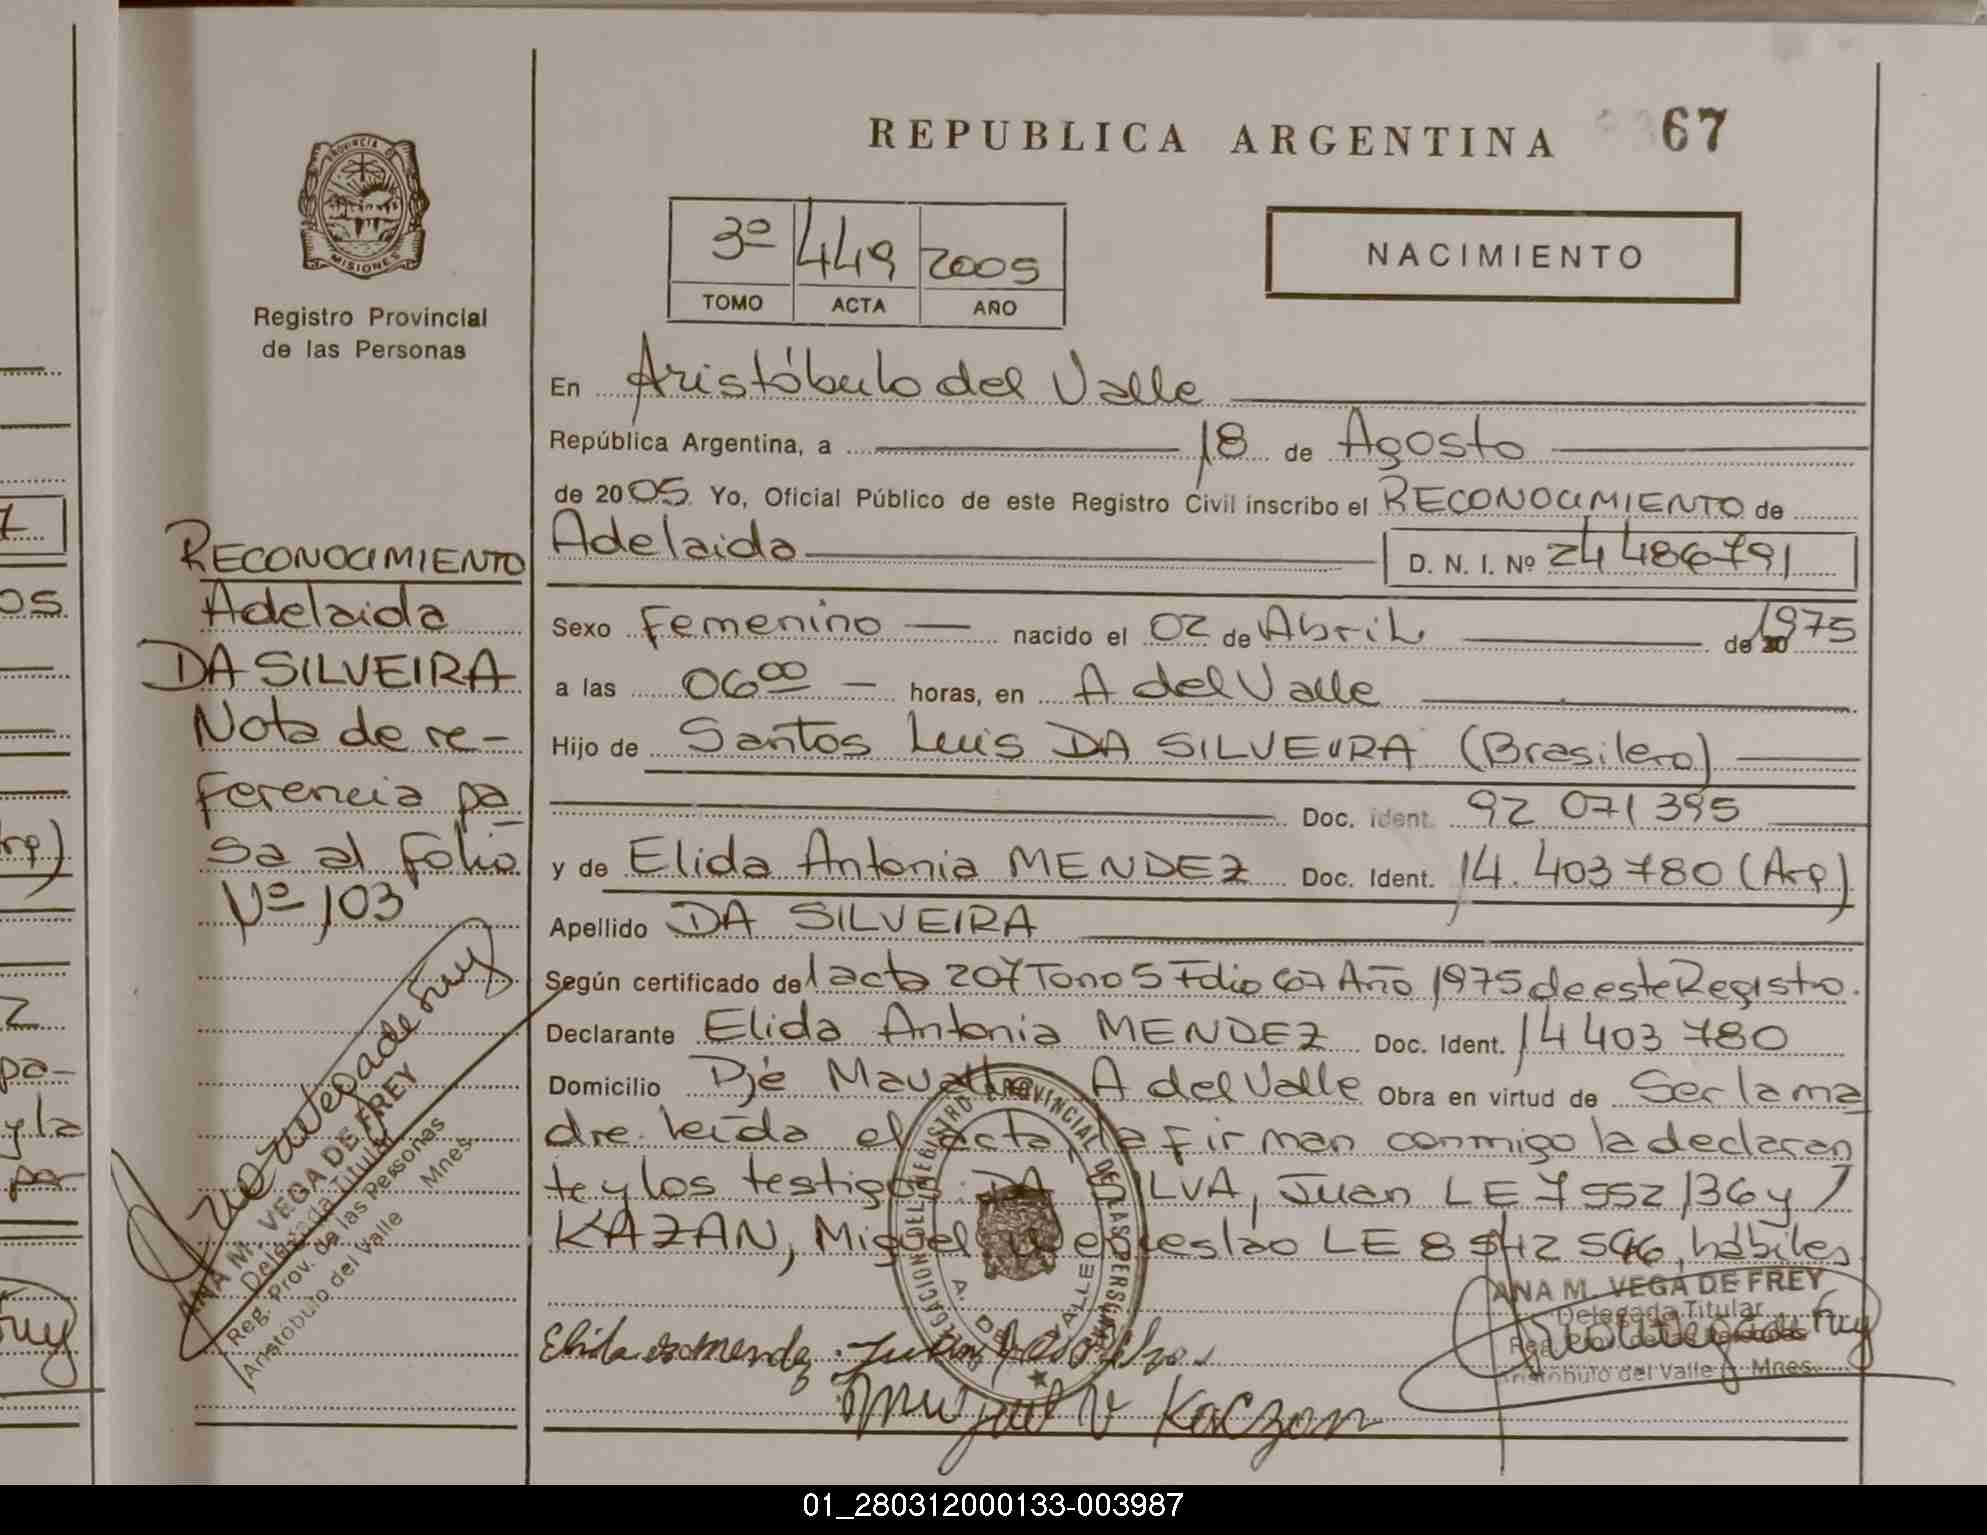 REPUBLICA ARGENTINA 67
PROVINCIA DE
MISIONES
Registro Provincial
de las Personas
3º 449 2005
TOMO ACTA AÑO
NACIMIENTO
En Aristóbulo del Valle
República Argentina, a 18 de Agosto
de 2005 Yo, Oficial Público de este Registro Civil inscribo el RECONOCIMIENTO de
Adelaida D. N. I. Nº 24 486791
Sexo Femenino nacido el 02 de Abril de 1975
a las 06 00 horas, en A del Valle
Hijo de Santos Luis DA SILVEIRA (Brasilero)
Doc. Ident. 92 071 395
y de Elida Antonia MENDEZ Doc. Ident. 14.403 780 (Arg)
Apellido DA SILVEIRA
Según certificado del acta 207 Tomo 5 Folio 67 Año 1975 de este Registro.
Declarante Elida Antonia MENDEZ Doc. Ident. 14 403 780
Domicilio A del Valle Obra en virtud de Ser la ma
dre. leída el acta, la firman conmigo la declaran
te y los testigos: DA SILVA, Juan LE 7 552 136 y
KAZAN, Miguel LE 8 542 546, hábiles
RECONOCIMIENTO
Adelaida
DA SILVEIRA
Nota de re-
ferencia pa
sa al folio
Nº 103
ANA M. VEGA DE FREY
Delegada Titular
Reg. Prov. de las Personas
Aristóbulo del Valle Mnes
DELEGACION DEL REGISTRO PROVINCIAL DE LAS PERSONAS
A. DEL VALLE
ANA M. VEGA DE FREY
Delegada Titular
Aristóbulo del Valle Mnes.
01_280312000133-003987